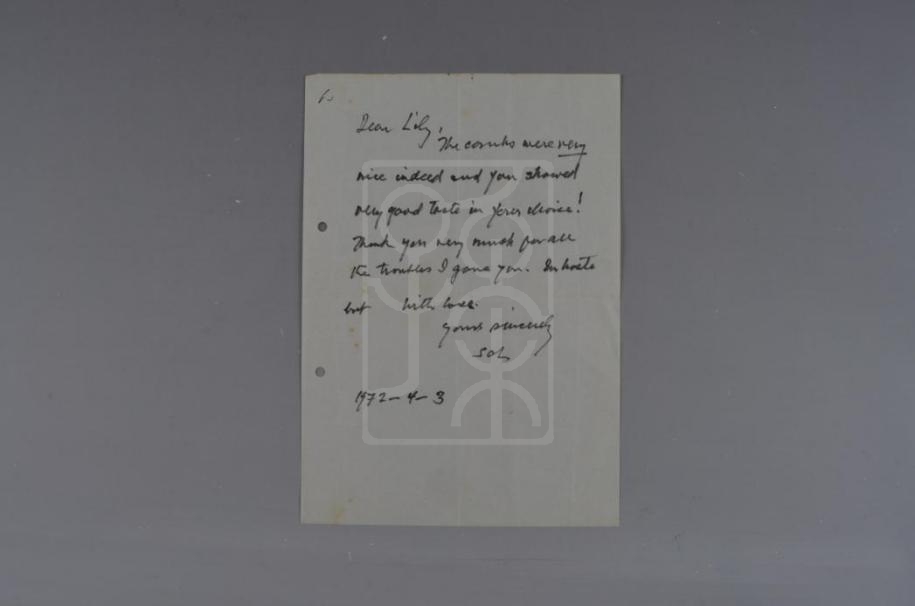 Dear Lily,
The were very
nice indeed and you showed
very good taste in your choice!
Thank you very much for all
the troubles I gave you. In haste
but with love.
yours sincerely
1972-4-3